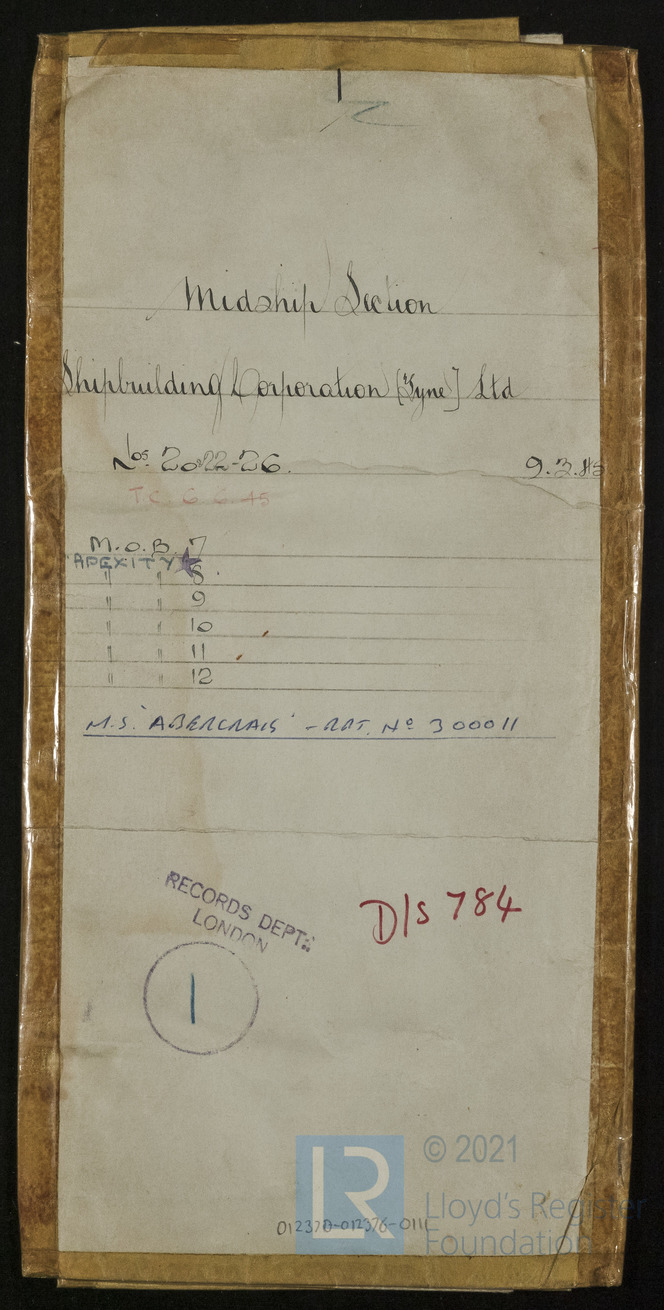 Midship Section
Shipbuilding Corporation [Tyne] Ltd
Nos. 2022-26. 9.3.45
T.C. 6 6 45
M.O.B. 7
"APEXITY" ★
" " 8
" " 9
" " 10
" " 11
" " 12
M.S. 'ABERCRAIG' - RPT. No 300011
RECORDS DEPT.
LONDON
D/S 784
1
© 2021
LR
Lloyd's Register
Foundation
012370-012376-0111